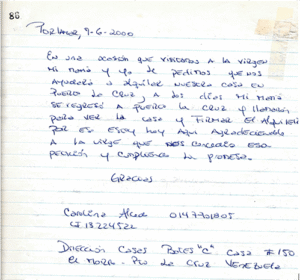 86
Porlamar, 9-6-2000
En una ocasión que visitamos a la virgen
Mi mamá y yo le pedimos que nos
ayudara a alquilar nuestra casa en
Puerto La Cruz, a los días Mi mamá
se regresó a Puerto la Cruz y llamaron
para ver la casa y Firmar El Alquiler
Por eso estoy hoy Aquí Agradeciendo
A la virge que nos concedio esa
petición y cumpliendo la promesa.
Gracias
Carolina 0147701805
CI 13224522
Dirección Casas Botes "C" Casa # 150
El Morro - Pto La Cruz Venezuela